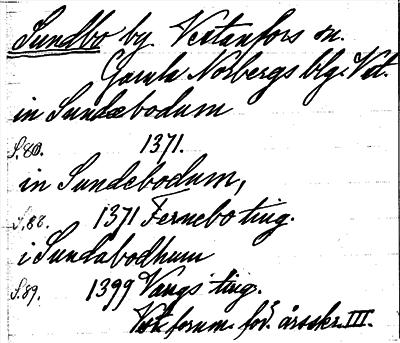 Sundbo by Västanfors sn.
Gamla Norbergs blg. Vst.
in Sundebodum
S.80. 1371.
in Sundebodum,
S.88. 1371 Fernebo ting.
i Sundabodhum
S.89. 1399 Vangs ting.
Västm. fornm. för. årsskr. III.